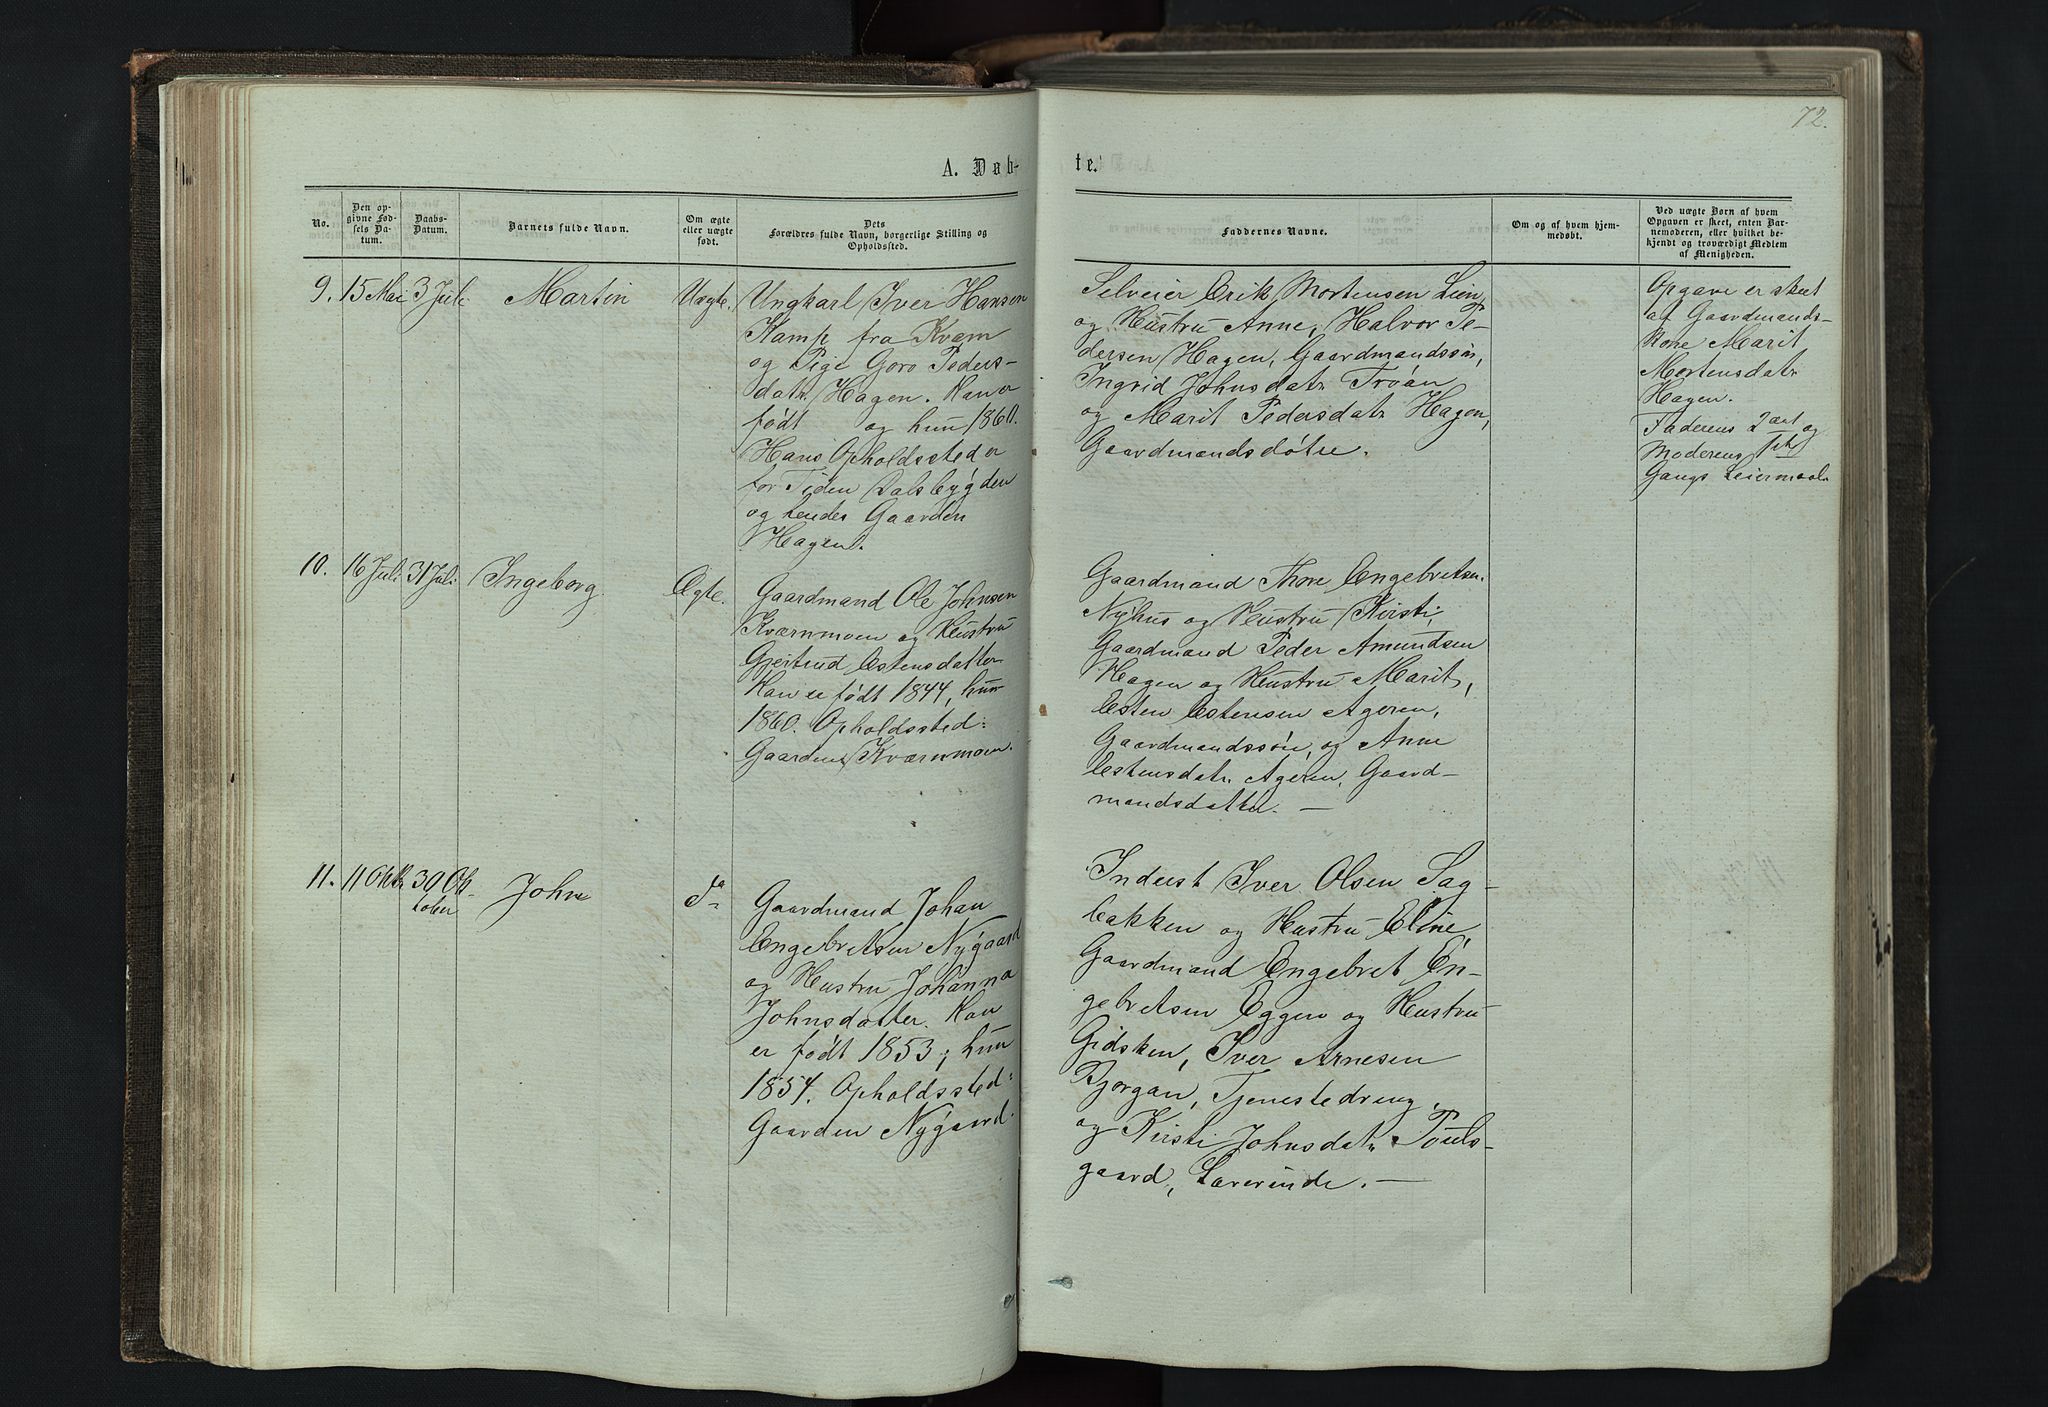 72.
A. Døb-
te.
No.
Den op-
givne Fød-
sels Da-
tum.
Daabs-
Datum.
Barnets fulde Navn.
Om ægte
eller uægte
født.
Dets
Forældres fulde Navn, borgerlige Stilling og
Opholdssted.
Faddernes Navne.
Om og af hvem hjem-
medøbt.
Ved uægte Børn af hvem
Opgaven er skeet, enten Bar-
nemoderen, eller hvilket be-
kjendt og troværdigt Medlem
af Menigheden.
9. 15 Mai 3 Juli Martin Uægte.
Ungkarl Iver Hansen
Kamp fra Kvam
og Pige Goro Peders-
datr. Hagen. Han er
født og hun 1860.
Hans Opholdssted er
for Tiden Dalsbygden
og hendes Gaarden
Hagen.
Selveier Erik Mortensen Lien
og Hustru Anne, Halvor Pe-
dersen Hagen, Gaardmandssøn,
Ingrid Johnsdatr Trøan
og Marit Pedersdatr Hagen,
Gaardmandsdøtre.
Opgave er skeet
af Gaardmands-
kone Marit
Mortensdatr
Hagen.
Faderens 2det og
Moderens 1ste
Gangs Leiermaal.
10. 16 Juli 31 Juli Ingeborg Ægte.
Gaardmand Ole Johnsen
Kværnmoen og Hustru
Gjertrud Estensdatter
Han er født 1844, hun
1860. Opholdssted:
Gaarden Kværnmoen.
Gaardmand Thore Engebretsen
Nyhus og Hustru Kirsti,
Gaardmand Peder Amundsen
Hagen og Hustru Marit,
Esten Estensen Ageren,
Gaardmandssøn, og Anne
Estensdatr. Ageren, Gaard-
mandsdatter. —
11. 11 Oktbr 30 Ok-
tober
John
Do
Gaardmand Johan
Engebretsen Nygaard
og Hustru Johanna
Johnsdatter. Han
er født 1853, hun
1854. Opholdssted:
Gaarden Nygaard.
Inderst Iver Olsen Sag-
bakken og Hustru Eline,
Gaardmand Engebret En-
gebretsen Eggen og Hustru
Gidsken, Iver Arnesen
Bjørgan, Tjenestedreng,
og Kirsti Johnsdatr. Pouls-
gaard, Lærerinde. —